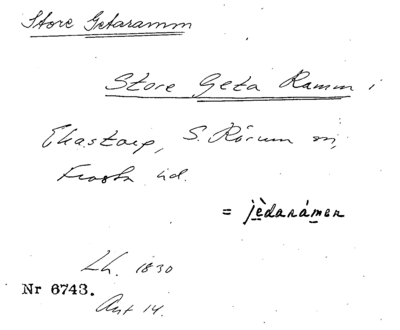 Store Getaramm
Store Geta Ramm i
Ekastorp, S. Rörum sn,
Frosta hd.
= jèdarámen
Lh. 1830
Nr 6743.
Akt 14.